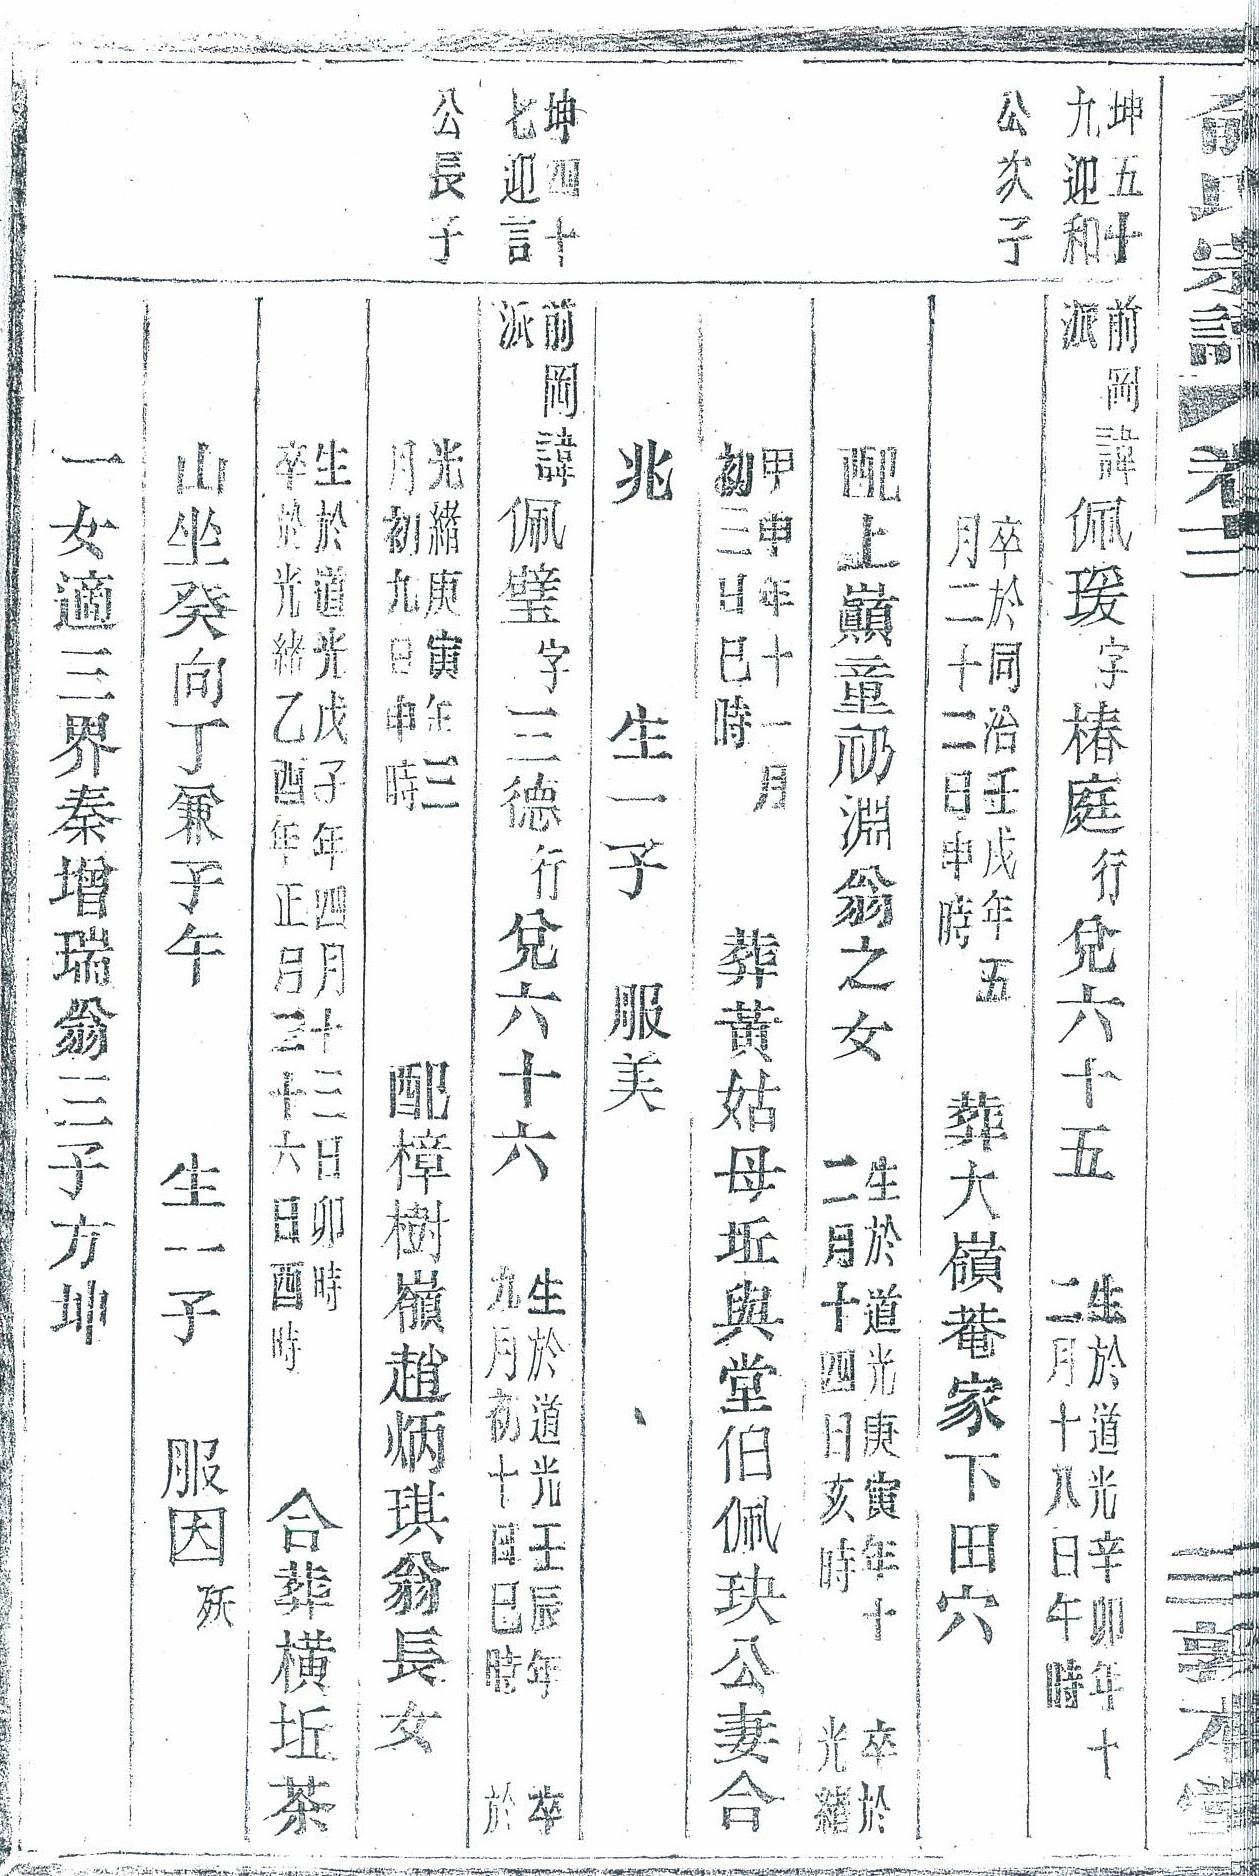 俞氏宗譜 卷 敦本堂
坤五十九迎和公次子
前岡派諱佩瑗字椿庭行兌六十五 生於道光辛卯年十二月十八日午時
卒於同治壬戌年五月二十二日申時 葬大嶺菴家下田穴
配上巔童礽淵翁之女 生於道光庚寅年十二月十四日亥時 卒於光緒
甲申年十一月初三日巳時 葬黃姑母坵與堂伯佩玦公妻合
兆 生一子 服美
坤四十七迎言公長子
前岡派諱佩璧字三德行兌六十六 生於道光壬辰年九月初十日巳時 卒於
光緒庚寅年三月初九日申時 配樟樹嶺趙炳琪翁長女
生於道光戊子年四月十三日卯時卒於光緒乙酉年正月二十六日酉時 合葬橫坵茶
山坐癸向丁兼子午 生一子 服因殀
一女適三界秦增瑞翁三子方坤